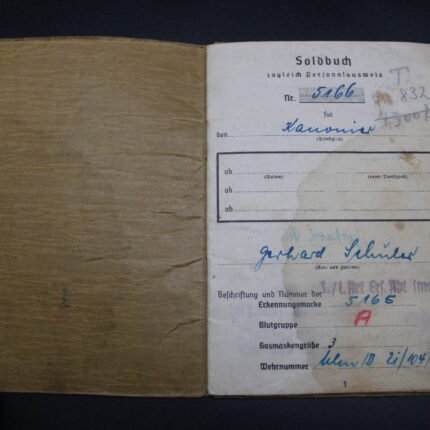 Soldbuch
zugleich Personalausweis
T.
Nr. 5166
832
für
den Kanonier
(Dienstgrad)
ab
(Datum) (neuer Dienstgrad)
ab
ab
Gerhard Schuler
(Vor- und Zuname)
Beschriftung und Nummer der
Erkennungsmarke 5165
Blutgruppe A
Gasmaskengröße 3
Wehrnummer Ulm
1